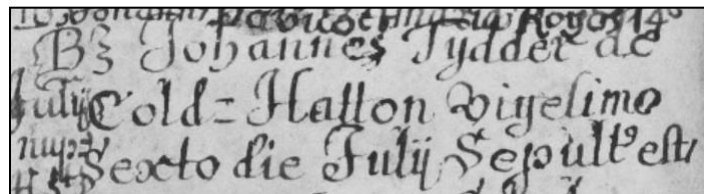 Bz Johannes Tydder de
July Cold= Hatton vigesimo
nupt Sexto die Julij Sepult9 est